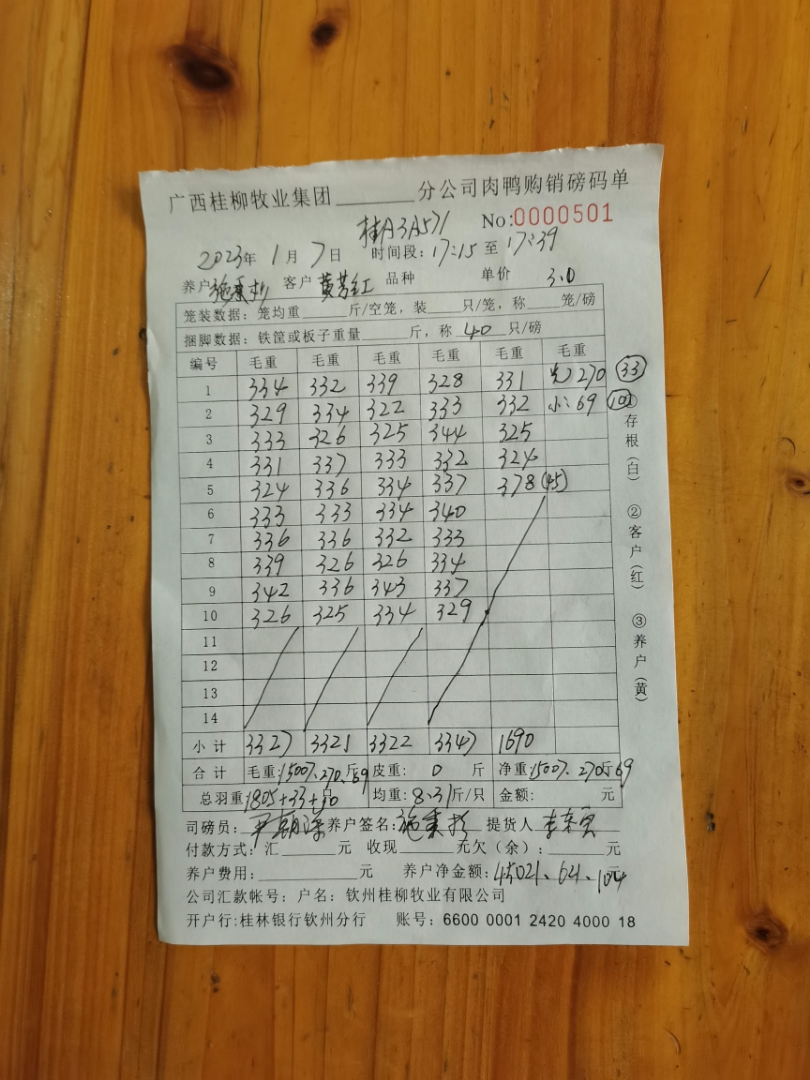 广西桂柳牧业集团________分公司肉鸭购销磅码单
桂A3A571 No:0000501
2023年 1月 7日 时间段: 17:15 至 17:39
养户 施秉杉 客户 黄芳红 品种 单价 3.0
笼装数据: 笼均重______斤/空笼, 装____只/笼, 称____笼/磅
捆脚数据: 铁筐或板子重量______斤, 称 40 只/磅
编号 毛重 毛重 毛重 毛重 毛重 毛重
1 334 332 339 328 331 270 (33)
2 329 334 322 333 332 小: 69
3 333 326 325 344 325
4 331 337 333 332 324
5 324 336 334 337 378 (45)
6 333 333 334 340
7 336 336 332 333
8 339 326 326 334
9 342 336 343 337
10 326 325 334 329
11
12
13
14
小计 3327 3321 3322 3347 1690
合计 毛重: 15007.270.69 斤 皮重: 0 斤 净重: 15007.270斤69
总羽重 1805+33+10 只 均重: 8.31 斤/只 金额: 元
司磅员: 养户签名: 施秉杉 提货人
付款方式: 汇______元 收现______元欠(余): ______元
养户费用: __________元 养户净金额: 45021.64.104
公司汇款帐号: 户名: 钦州桂柳牧业有限公司
开户行: 桂林银行钦州分行 账号: 6600 0001 2420 4000 18
①存根(白) ②客户(红) ③养户(黄)